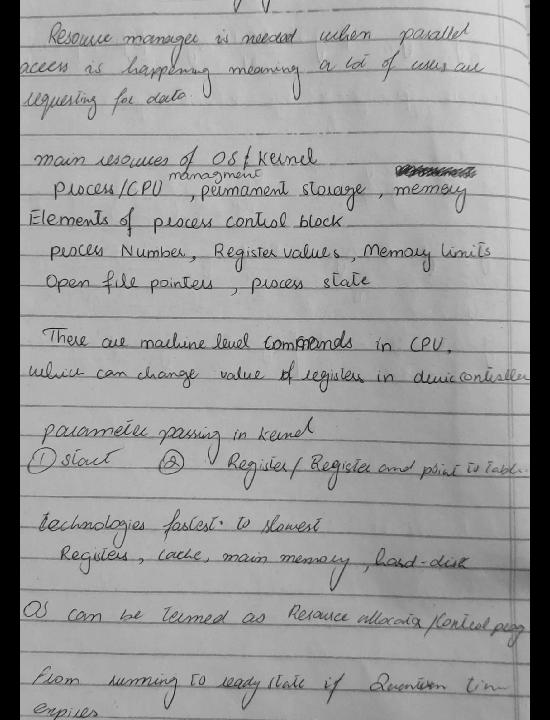 Resource manager is needed when parallel
access is happening meaning a lot of users are
requesting for data.
main resources of OS/Kernel
process/CPU managment, permament storage, memory
Elements of process control block
process Number, Register values, Memory limits
Open file pointers, process state
There are machine level commands in CPU,
which can change value of registers in device controller
parameter passing in kernel
① start ② Register/Register and point to table.
technologies fastest to slowest
Registers, cache, main memory, hard-disk
OS can be termed as Resource allocator/Control prog
From running to ready state if Quantum time
expires